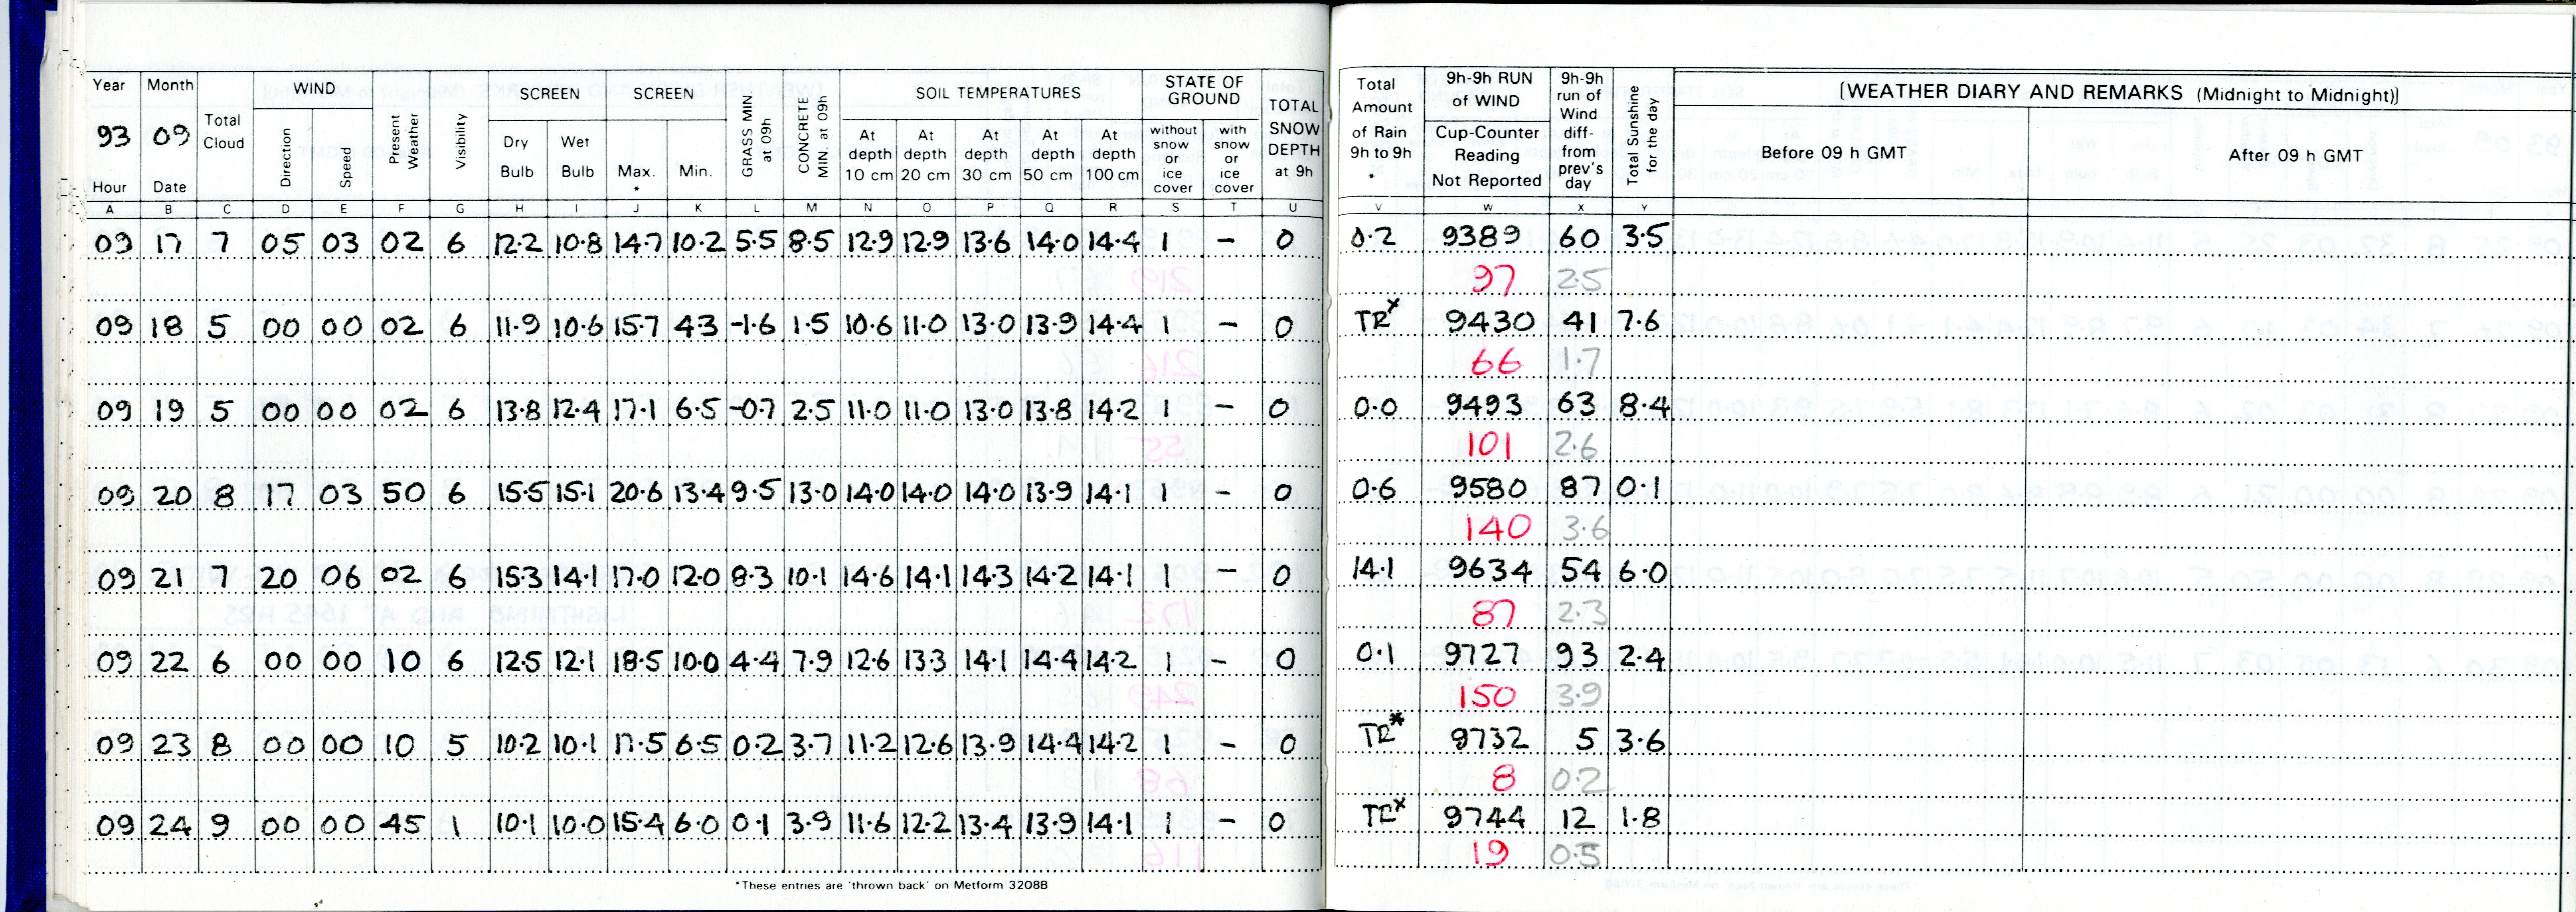 Year Month Total Cloud WIND Present Weather Visibility SCREEN SCREEN GRASS MIN at 09h CONCRETE MIN. at 09h SOIL TEMPERATURES STATE OF GROUND TOTAL SNOW DEPTH at 9h Total Amount of Rain 9h to 9h * 9h-9h RUN of WIND 9h-9h run of Wind diff- from prev's day Total Sunshine for the day [WEATHER DIARY AND REMARKS (Midnight to Midnight)]
93 09 Direction Speed Dry Bulb Wet Bulb Max. * Min. At depth 10 cm At depth 20 cm At depth 30 cm At depth 50 cm At depth 100 cm without snow or ice cover with snow or ice cover Cup-Counter Reading Not Reported Before 09 h GMT After 09 h GMT
Hour Date
A B C D E F G H I J K L M N O P Q R S T U V W X Y
09 17 7 05 03 02 6 12.2 10.8 14.7 10.2 5.5 8.5 12.9 12.9 13.6 14.0 14.4 1 – 0 0.2 9389 60 3.5
97 2.5
09 18 5 00 00 02 6 11.9 10.6 15.7 4.3 -1.6 1.5 10.6 11.0 13.0 13.9 14.4 1 – 0 TR* 9430 41 7.6
66 1.7
09 19 5 00 00 02 6 13.8 12.4 17.1 6.5 -0.7 2.5 11.0 11.0 13.0 13.8 14.2 1 – 0 0.0 9493 63 8.4
101 2.6
09 20 8 17 03 50 6 15.5 15.1 20.6 13.4 9.5 13.0 14.0 14.0 14.0 13.9 14.1 1 – 0 0.6 9580 87 0.1
140 3.6
09 21 7 20 06 02 6 15.3 14.1 17.0 12.0 8.3 10.1 14.6 14.1 14.3 14.2 14.1 1 – 0 14.1 9634 54 6.0
87 2.3
09 22 6 00 00 10 6 12.5 12.1 18.5 10.0 4.4 7.9 12.6 13.3 14.1 14.4 14.2 1 – 0 0.1 9727 93 2.4
150 3.9
09 23 8 00 00 10 5 10.2 10.1 17.5 6.5 0.2 3.7 11.2 12.6 13.9 14.4 14.2 1 – 0 TR* 9732 5 3.6
8 0.2
09 24 9 00 00 45 1 10.1 10.0 15.4 6.0 0.1 3.9 11.6 12.2 13.4 13.9 14.1 1 – 0 TR* 9744 12 1.8
19 0.5
*These entries are 'thrown back' on Metform 3208B